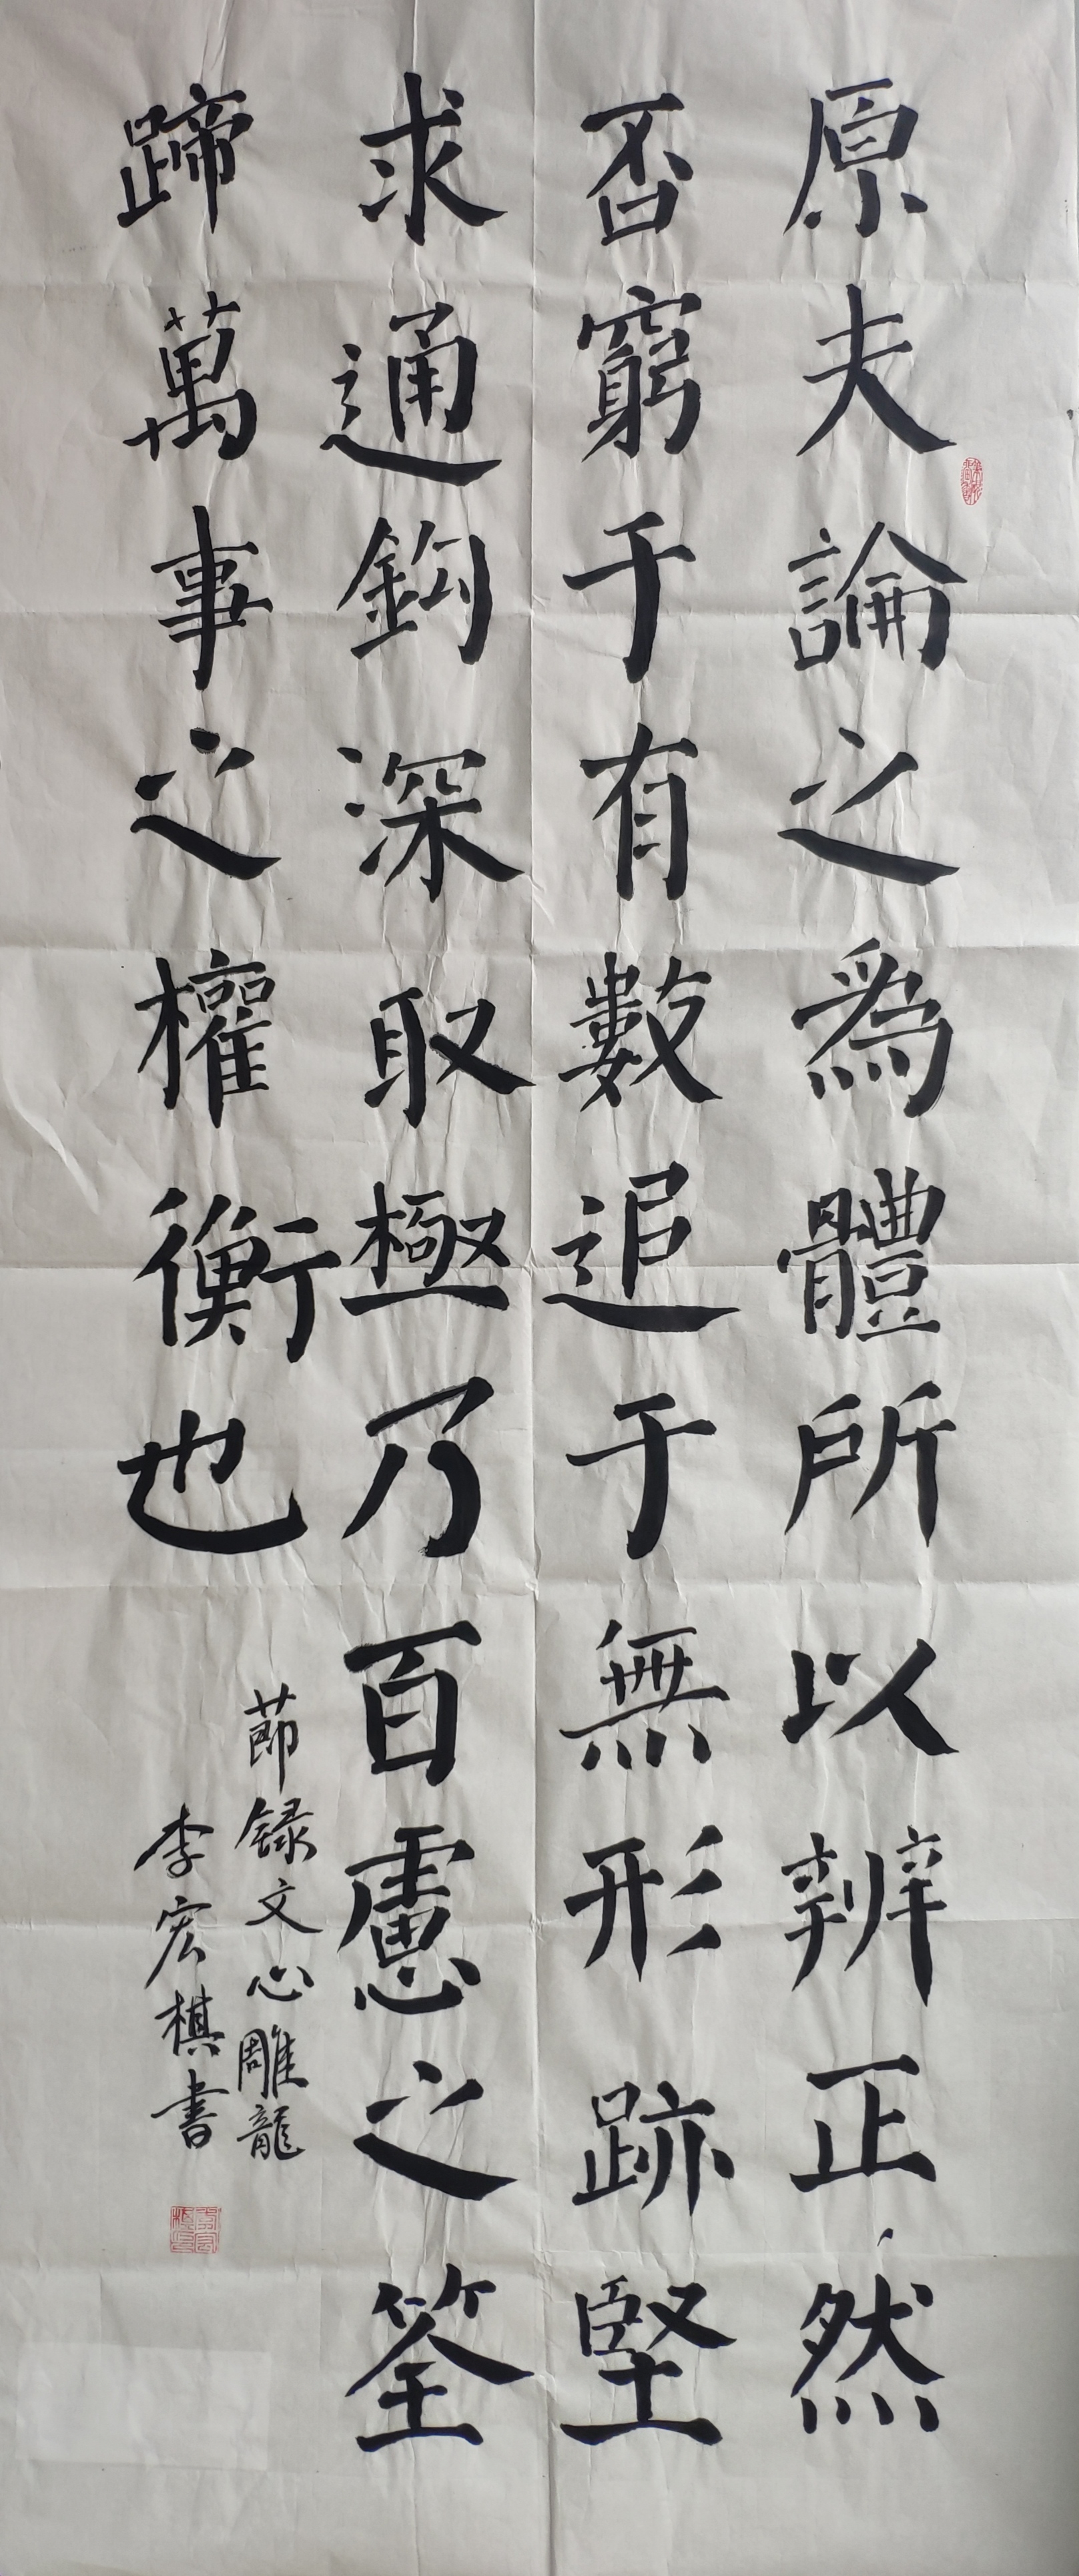 原夫論之為體所以辨正然
否窮于有數追于無形跡堅
求通鈎深取極乃百慮之筌
蹄萬事之權衡也
節録文心雕龍
李宏棋書